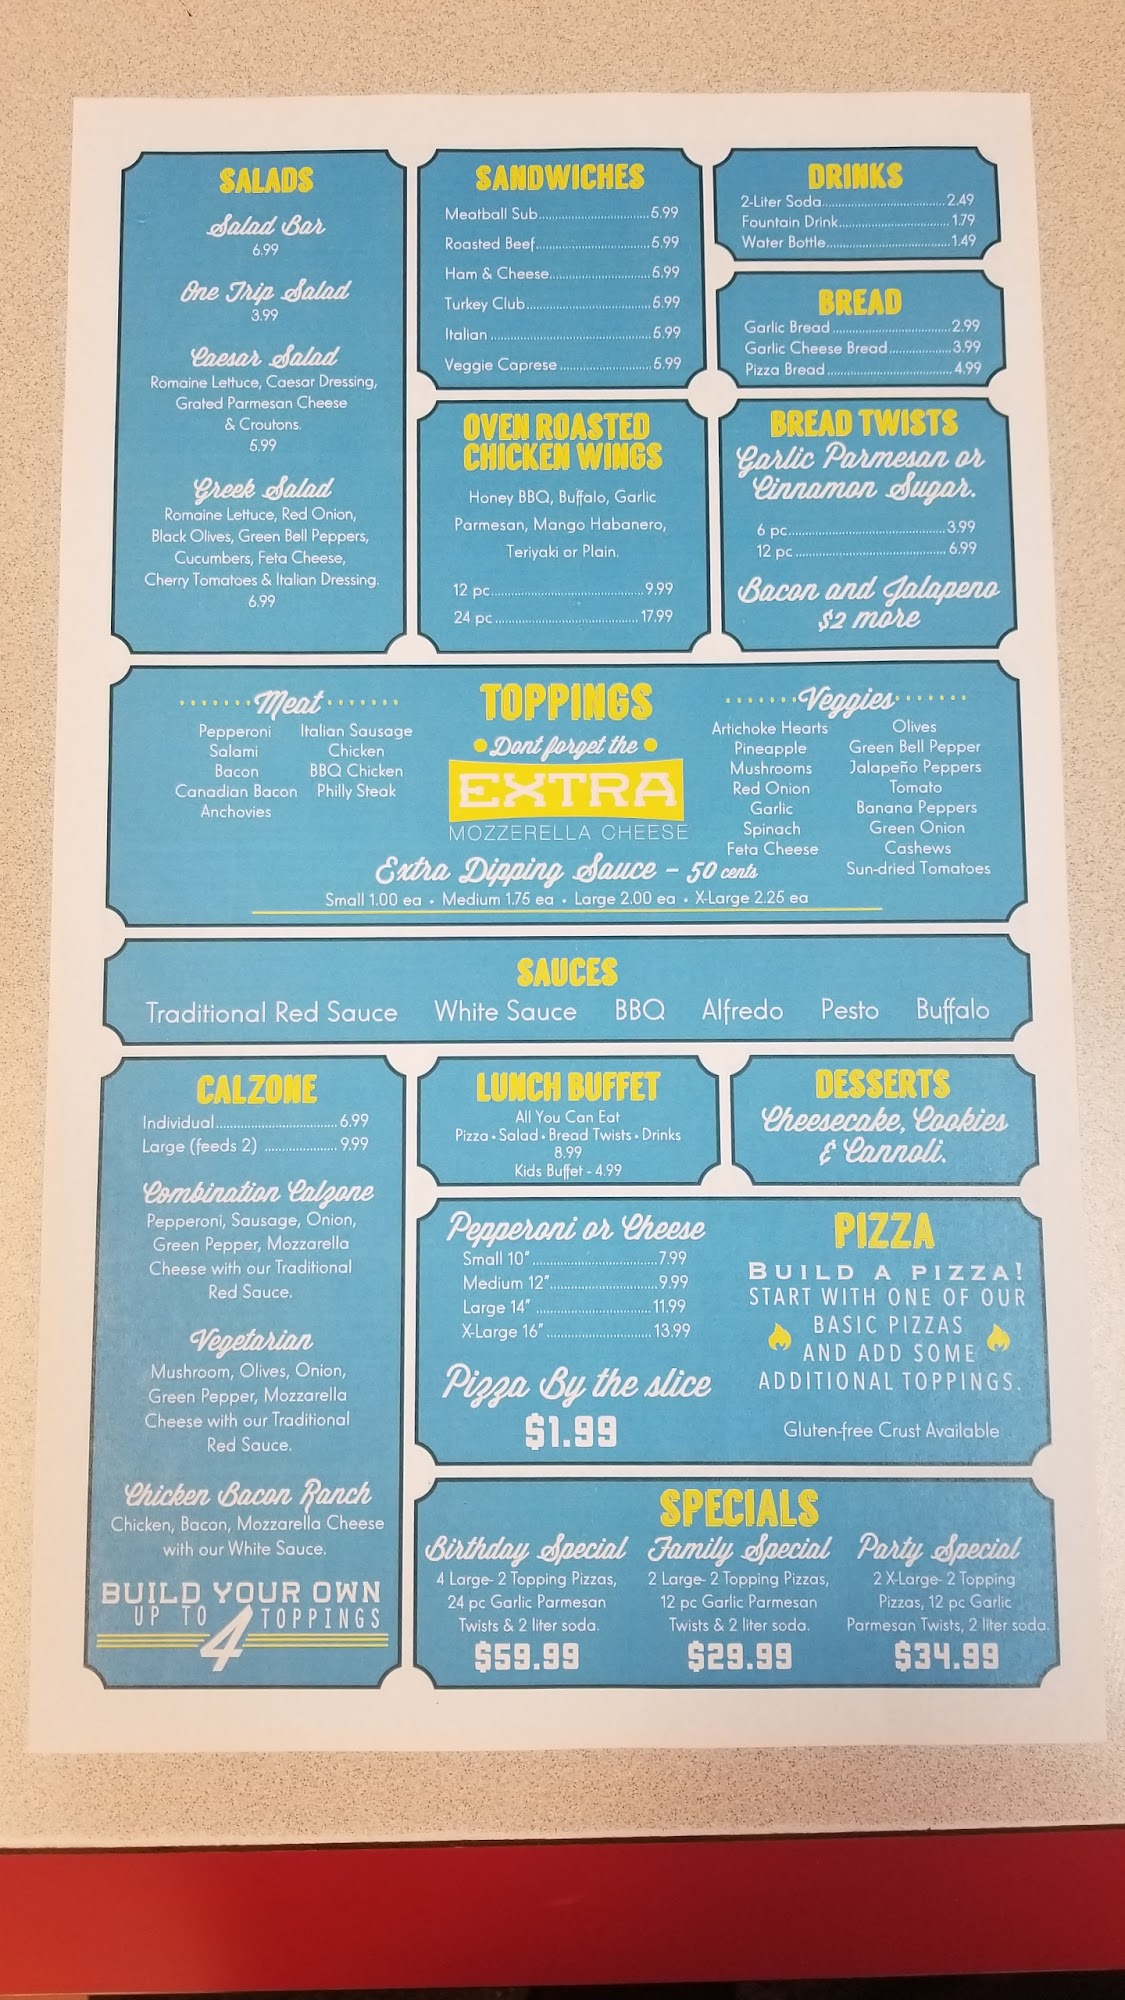 SALADS
Salad Bar
6.99
One Trip Salad
3.99
Caesar Salad
Romaine Lettuce, Caesar Dressing,
Grated Parmesan Cheese
& Croutons.
5.99
Greek Salad
Romaine Lettuce, Red Onion,
Black Olives, Green Bell Peppers,
Cucumbers, Feta Cheese,
Cherry Tomatoes & Italian Dressing.
6.99
SANDWICHES
Meatball Sub 5.99
Roasted Beef 5.99
Ham & Cheese 5.99
Turkey Club 5.99
Italian 5.99
Veggie Caprese 5.99
DRINKS
2-Liter Soda 2.49
Fountain Drink 1.79
Water Bottle 1.49
BREAD
Garlic Bread 2.99
Garlic Cheese Bread 3.99
Pizza Bread 4.99
OVEN ROASTED
CHICKEN WINGS
Honey BBQ, Buffalo, Garlic
Parmesan, Mango Habanero,
Teriyaki or Plain.
12 pc 9.99
24 pc 17.99
BREAD TWISTS
Garlic Parmesan or
Cinnamon Sugar.
6 pc 3.99
12 pc 6.99
Bacon and Jalapeno
$2 more
Meat
Pepperoni
Salami
Bacon
Canadian Bacon
Anchovies
Italian Sausage
Chicken
BBQ Chicken
Philly Steak
TOPPINGS
Dont forget the
EXTRA
MOZZERELLA CHEESE
Veggies
Artichoke Hearts
Pineapple
Mushrooms
Red Onion
Garlic
Spinach
Feta Cheese
Olives
Green Bell Pepper
Jalapeño Peppers
Tomato
Banana Peppers
Green Onion
Cashews
Sun-dried Tomatoes
Extra Dipping Sauce - 50 cents
Small 1.00 ea • Medium 1.75 ea • Large 2.00 ea • X-Large 2.25 ea
SAUCES
Traditional Red Sauce White Sauce BBQ Alfredo Pesto Buffalo
CALZONE
Individual 6.99
Large (feeds 2) 9.99
Combination Calzone
Pepperoni, Sausage, Onion,
Green Pepper, Mozzarella
Cheese with our Traditional
Red Sauce.
Vegetarian
Mushroom, Olives, Onion,
Green Pepper, Mozzarella
Cheese with our Traditional
Red Sauce.
Chicken Bacon Ranch
Chicken, Bacon, Mozzarella Cheese
with our White Sauce.
BUILD YOUR OWN
UP TO 4 TOPPINGS
LUNCH BUFFET
All You Can Eat
Pizza • Salad • Bread Twists • Drinks
8.99
Kids Buffet - 4.99
DESSERTS
Cheesecake, Cookies
& Cannoli.
Pepperoni or Cheese
Small 10" 7.99
Medium 12" 9.99
Large 14" 11.99
X-Large 16" 13.99
Pizza By the slice
$1.99
PIZZA
BUILD A PIZZA!
START WITH ONE OF OUR
BASIC PIZZAS
AND ADD SOME
ADDITIONAL TOPPINGS.
Gluten-free Crust Available
SPECIALS
Birthday Special
4 Large- 2 Topping Pizzas,
24 pc Garlic Parmesan
Twists & 2 liter soda.
$59.99
Family Special
2 Large- 2 Topping Pizzas,
12 pc Garlic Parmesan
Twists & 2 liter soda.
$29.99
Party Special
2 X-Large- 2 Topping
Pizzas, 12 pc Garlic
Parmesan Twists, 2 liter soda.
$34.99